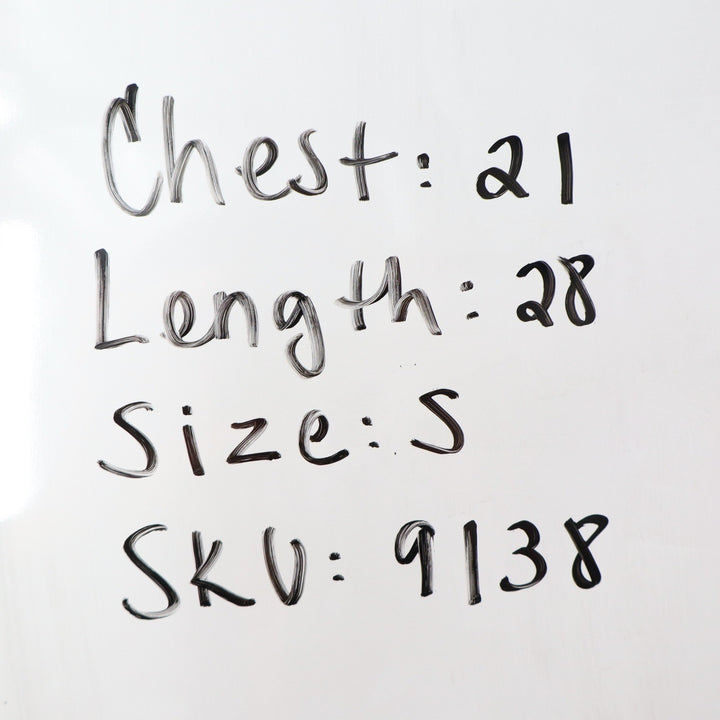 Chest: 21
Length: 28
Size: S
SKU: 9138